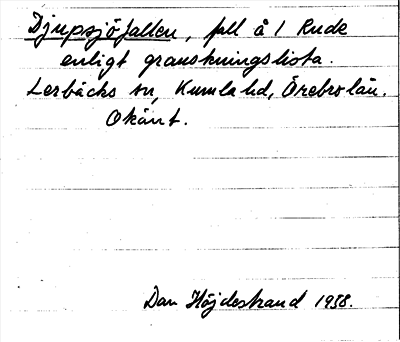 Djupsjöfallen, fall å 1 Rude
enligt granskningslista.
Lerbäcks sn, Kumla hd, Örebro län.
Okänt.
Dan Höjdestrand 1938.